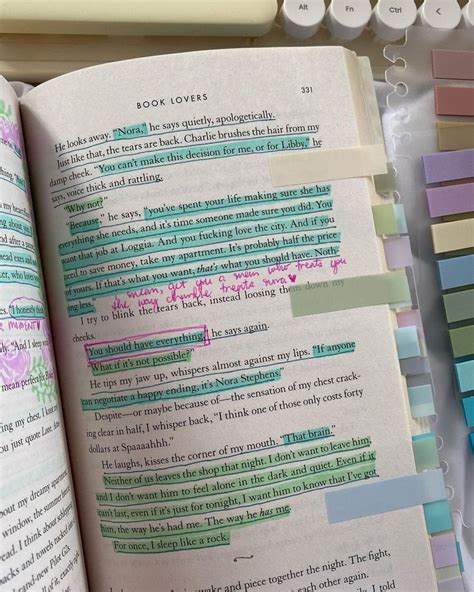 Alt
Fn
Ctrl
<
BOOK LOVERS
331
He looks away. "Nora," he says quietly, apologetically.
Just like that, the tears are back. Charlie brushes the hair from my
damp cheek. "You can't make this decision for me, or for Libby," he
says, voice thick and rattling.
"Why not?"
"Because," he says, "you've spent your life making sure she has
everything she needs, and it's time someone made sure you did. You
want that job at Loggia. And you fucking love the city. And if you
need to save money, take my apartment. It's probably half the price
of yours. If that's what you want, that's what you should have. Noth-
ing less."
I mean, get you a man who treats you
the way charlie treats nora ♥
I try to blink the tears back, instead loosing them down my
cheeks.
"You should have everything," he says again.
"What if it's not possible?"
He tips my jaw up, whispers almost against my lips. "If anyone
can negotiate a happy ending, it's Nora Stephens."
Despite—or maybe because of—the sensation of my chest crack-
ing clear in half, I whisper back, "I think one of those only costs forty
dollars at Spaaaahhh."
He laughs, kisses the corner of my mouth. "That brain."
Neither of us leaves the shop that night. I don't want to leave him,
and I don't want him to feel alone in the dark and quiet. Even if it
can't last, even if it's just for tonight, I want him to know that I've got
him, the way he's had me. The way he has me.
For once, I sleep like a rock.
wake and piece together the night. The fight,
each other again.
I told